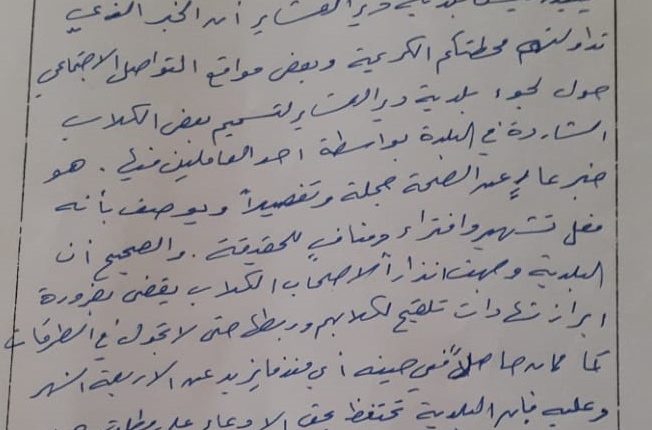 بلدية دير العشاير أن الخبر الذي
تداولته محطتكم الكريمة وبعض مواقع التواصل الاجتماعي
حول لجوء بلدية دير العشاير لتسميم بعض الكلاب
الشاردة في البلدة بواسطة احد العاملين فيها . هو
خبر عارٍ عن الصحة جملة وتفصيلاً ويوصف بأنه
فعل تشهير وافتراء ومنافي للحقيقة . والصحيح أن
البلدية وجهت انذاراً لاصحاب الكلاب يقضي بضرورة
ابراز شهادات تلقيح لكلابهم وربطها حتى لا تجول في الطرقات
كما كان حاصلاً في حينه أي منذ ما يزيد عن الاربعة اشهر
وعليه فإن البلدية تحتفظ بحق الادعاء على